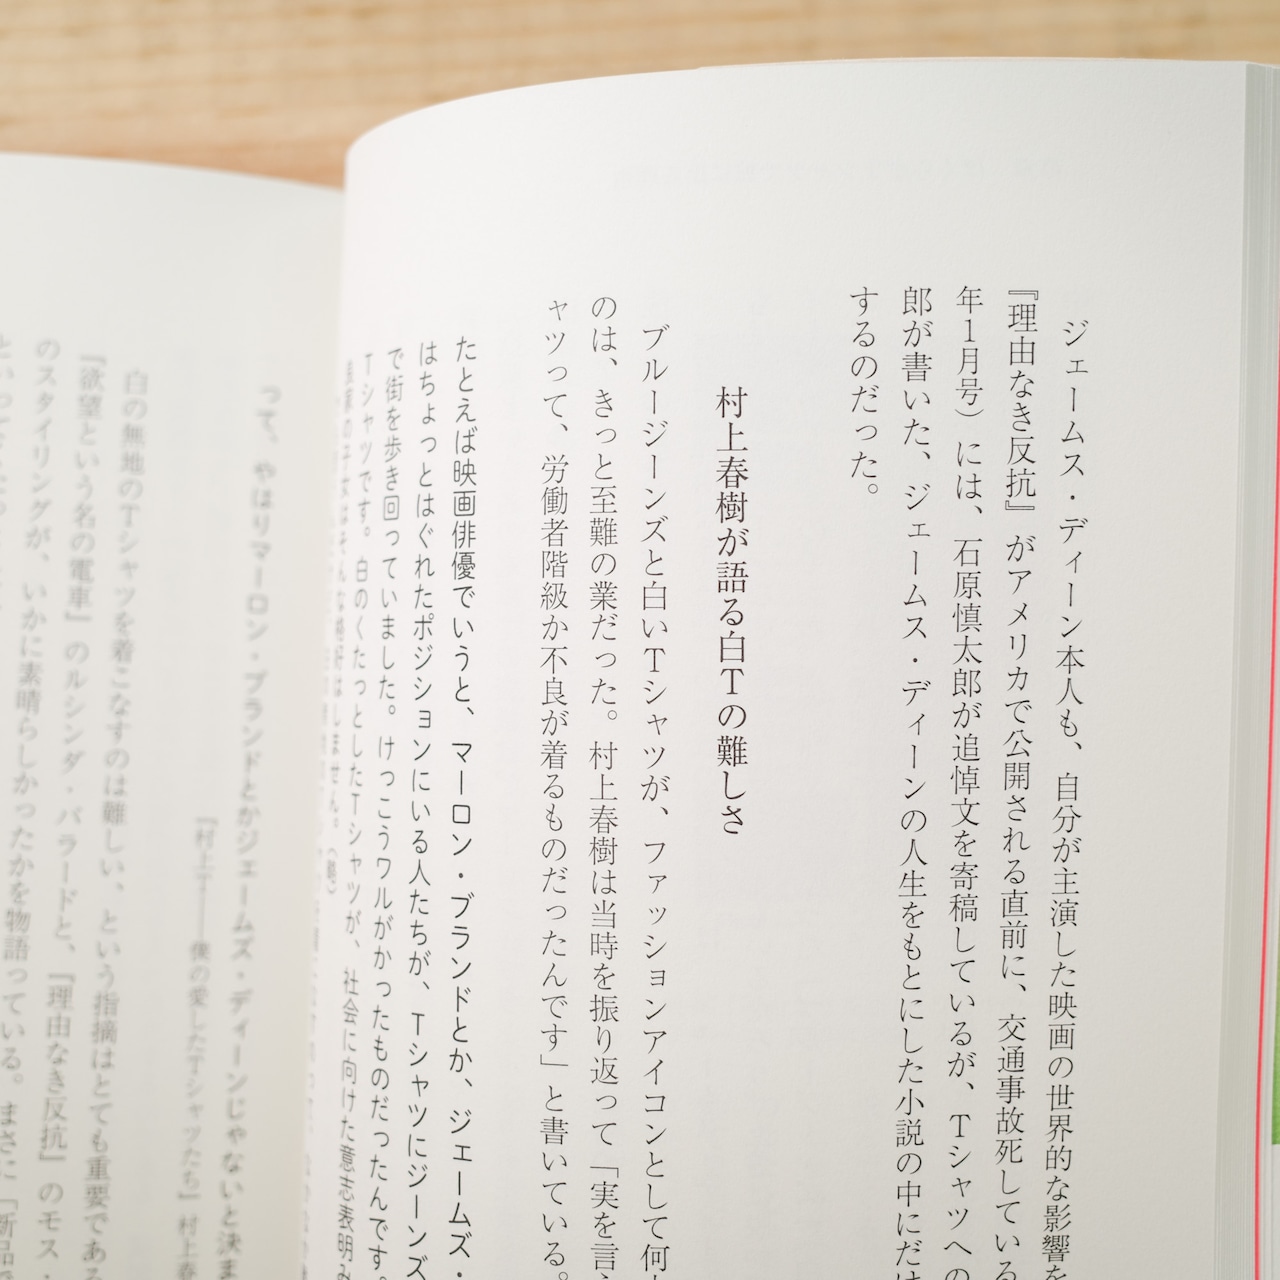 ジェームス・ディーン本人も、自分が主演した映画の世界的な影響を
『理由なき反抗』がアメリカで公開される直前に、交通事故死している
年1月号）には、石原慎太郎が追悼文を寄稿しているが、Tシャツへの
郎が書いた、ジェームス・ディーンの人生をもとにした小説の中にだけ
するのだった。
村上春樹が語る白Tの難しさ
ブルージーンズと白いTシャツが、ファッションアイコンとして何
のは、きっと至難の業だった。村上春樹は当時を振り返って「実を言
ャツって、労働者階級か不良が着るものだったんです」と書いている。
たとえば映画俳優でいうと、マーロン・ブランドとか、ジェームズ・
はちょっとはぐれたポジションにいる人たちが、Tシャツにジーンズ
で街を歩き回っていました。けっこうワルがかったものだったんです。
Tシャツです。白のくたっとしたTシャツが、社会に向けた意志表明み
って、やはりマーロン・ブランドとかジェームズ・ディーンじゃないと決ま
『村上T――僕の愛したTシャツたち』村上春
白の無地のTシャツを着こなすのは難しい、という指摘はとても重要である
『欲望という名の電車』のルシンダ・バラードと、『理由なき反抗』のモス・
のスタイリングが、いかに素晴らしかったかを物語っている。まさに「新品